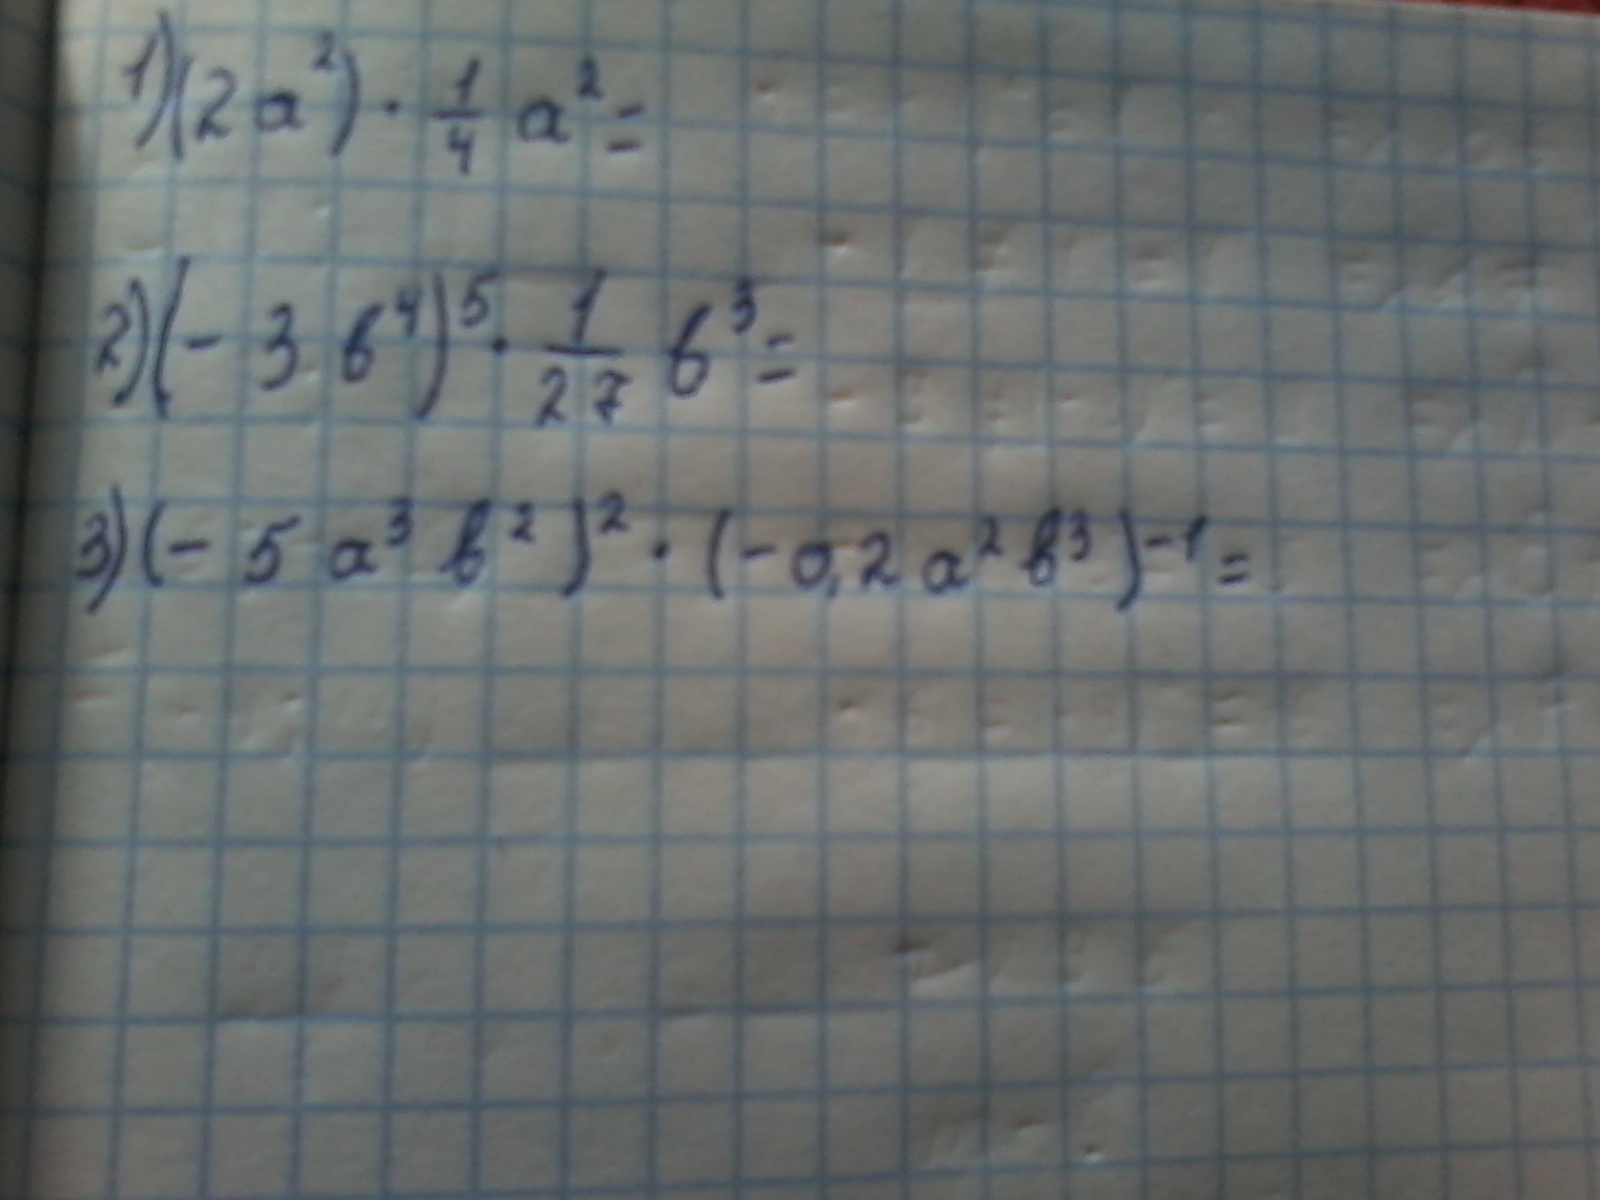 1) (2a²) · 1/4 a² =
2) (-3b⁴)⁵ · 1/27 b³ =
3) (-5a³b²)² · (-0,2a²b³)⁻¹ =